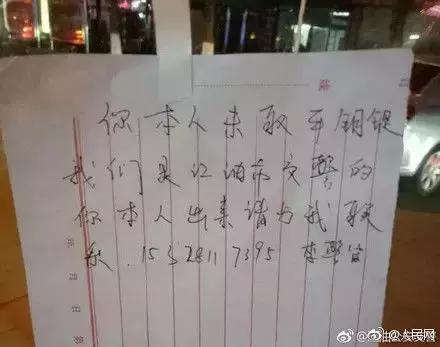 你本人未取车钥
我们是江油市交警的
你本人出来请与我联
系.15328117395 李警官
@人民网